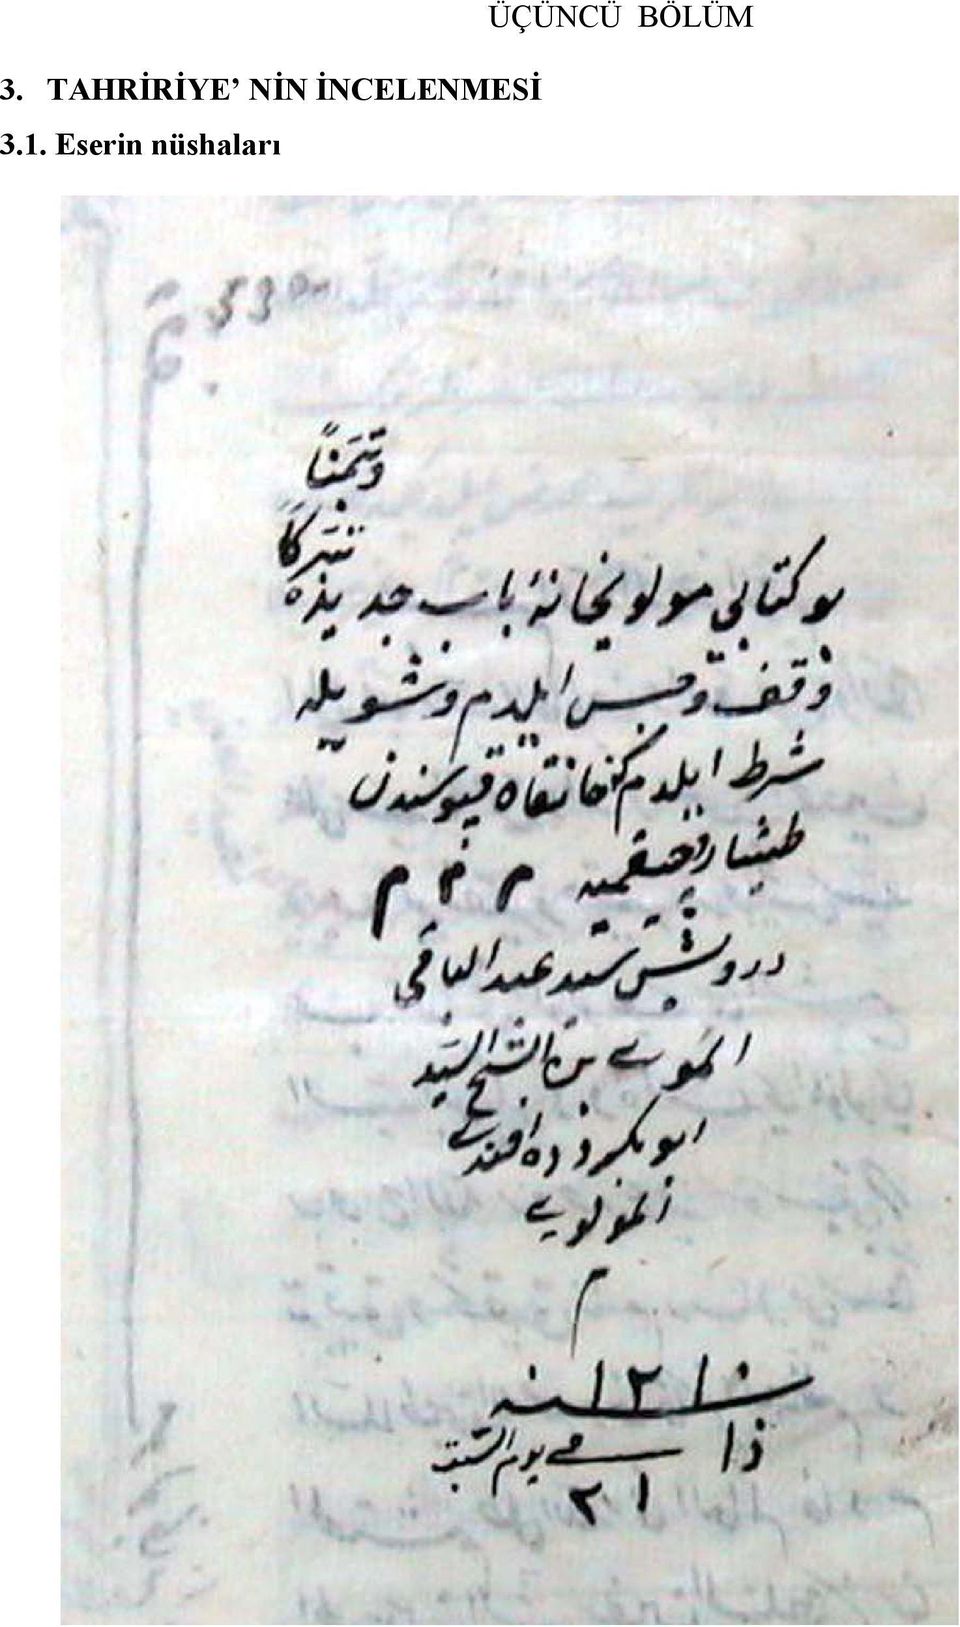 ÜÇÜNCÜ BÖLÜM
3. TAHRİRİYE’ NİN İNCELENMESİ
3.1. Eserin nüshaları
53
وتیمناً
تبركاً
بو كتابی مولویخانهٔ باب جدیده
وقف وحبس ایلدم وشویله
شرط ایلدم كه خانقاه قپوسندن
طشاره چیقمیه م م م
درویش سید عبد الباقی
المولوی بن الشیخ السید
ابو بكر زاده افندی
المولوی
م
١٢١٠ سنه
ذا فی یوم السبت
٢١